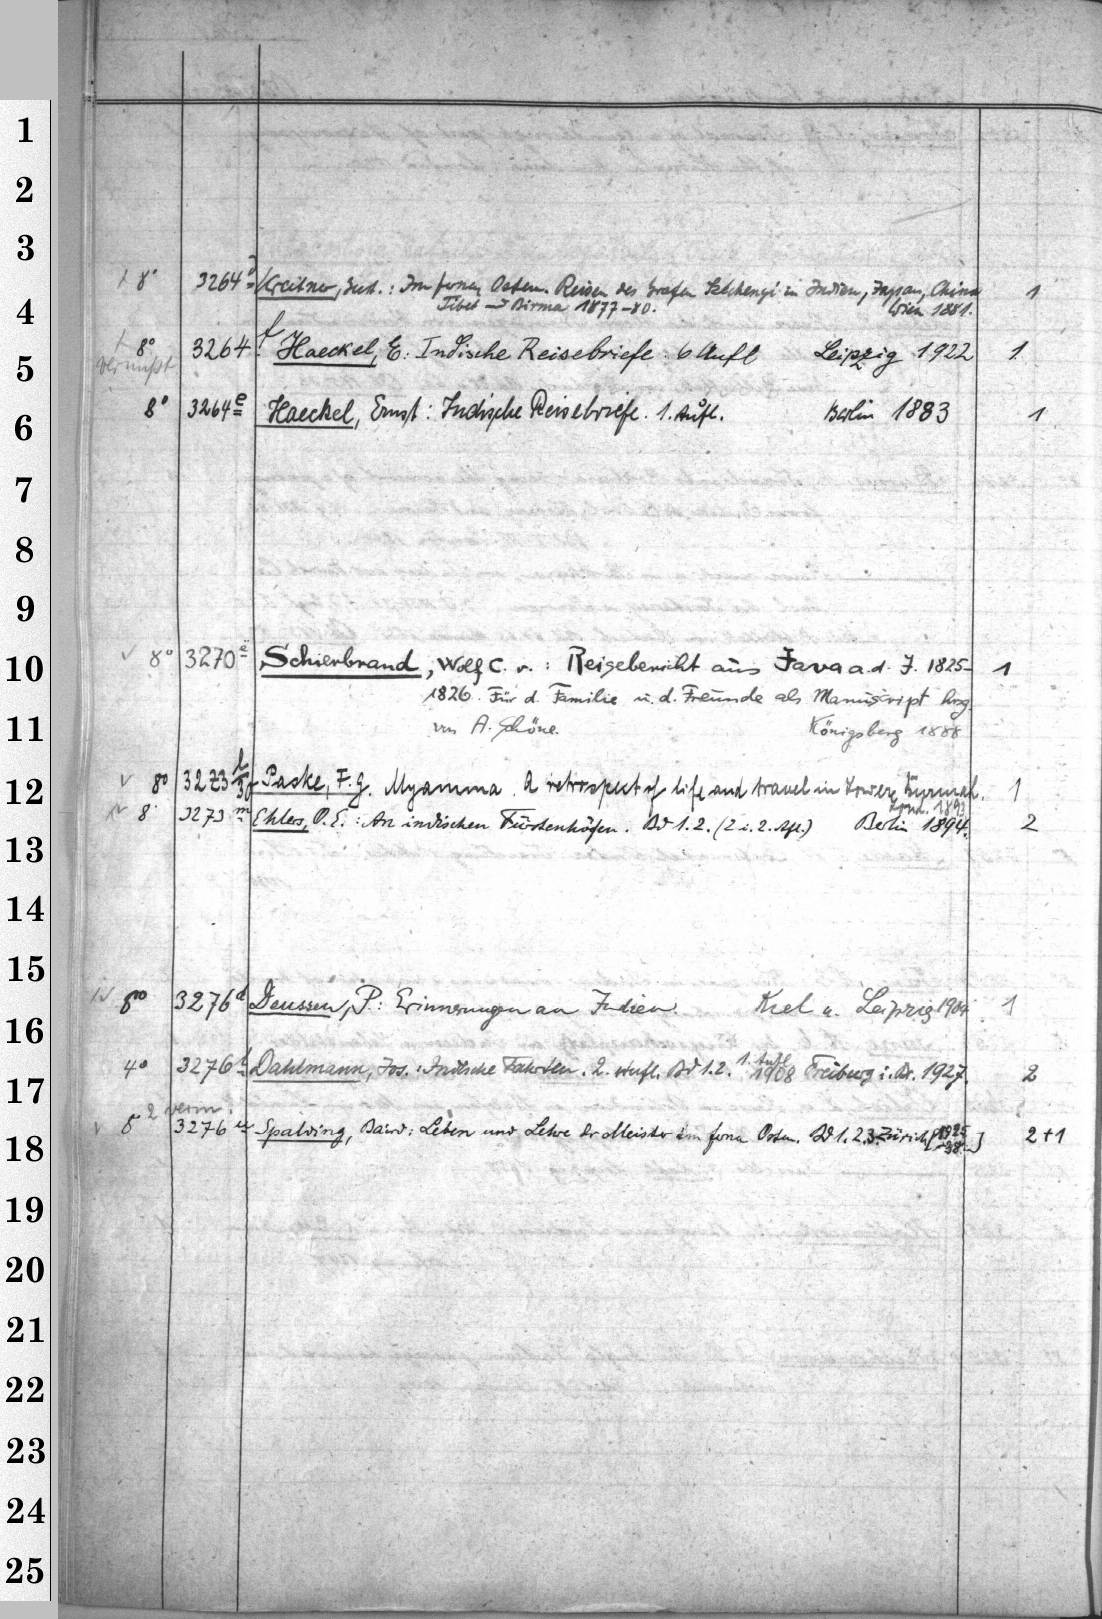 1
2
3
8° 3264 d Kreitner, Gust.: Im fernen Osten. Reisen des Grafen Szechenyi in Indien, Japan, China 1
4
Tibet u Birma 1877-80. Wien 1881.
8° 3264 f Haeckel, E: Indische Reisebriefe. 6 Aufl Leipzig 1922 1
vermißt
5
8° 3264 e Haeckel, Ernst: Indische Reisebriefe. 1. Aufl. Berlin 1883 1
6
7
8
9
10
8° 3270 e Schierbrand, Wolf C. v.: Reisebericht aus Java a. d. J. 1825- 1
1826. Für d. Familie u. d. Freunde als Manuscript hrsg
11
von A. Schöne. Königsberg 1888
12
8° 3273 l Paske, F. G. Myamma. A retrospect of life and travel in Lower Byrmah. 1
Lond. 1893
8° 3273 m Ehlers, O. E.: An indischen Fürstenhöfen. Bd 1. 2. (2 i. 2. Afl.) Berlin 1894. 2
13
14
15
8° 3276 d Deussen, P.: Erinnerungen an Indien. Kiel u. Leipzig 1904 1
16
4° 3276 Dahlmann, Jos.: Indische Fahrten. 2. Aufl. Bd 1. 2. 1. Aufl 1908 Freiburg i. Br. 1927. 2
17
2 verm.
8° 3276 Spalding, Baird: Leben und Lehre der Meister im fernen Osten. Bd 1. 2. 3. Zürich [1925 -38] 2+1
18
19
20
21
22
23
24
25